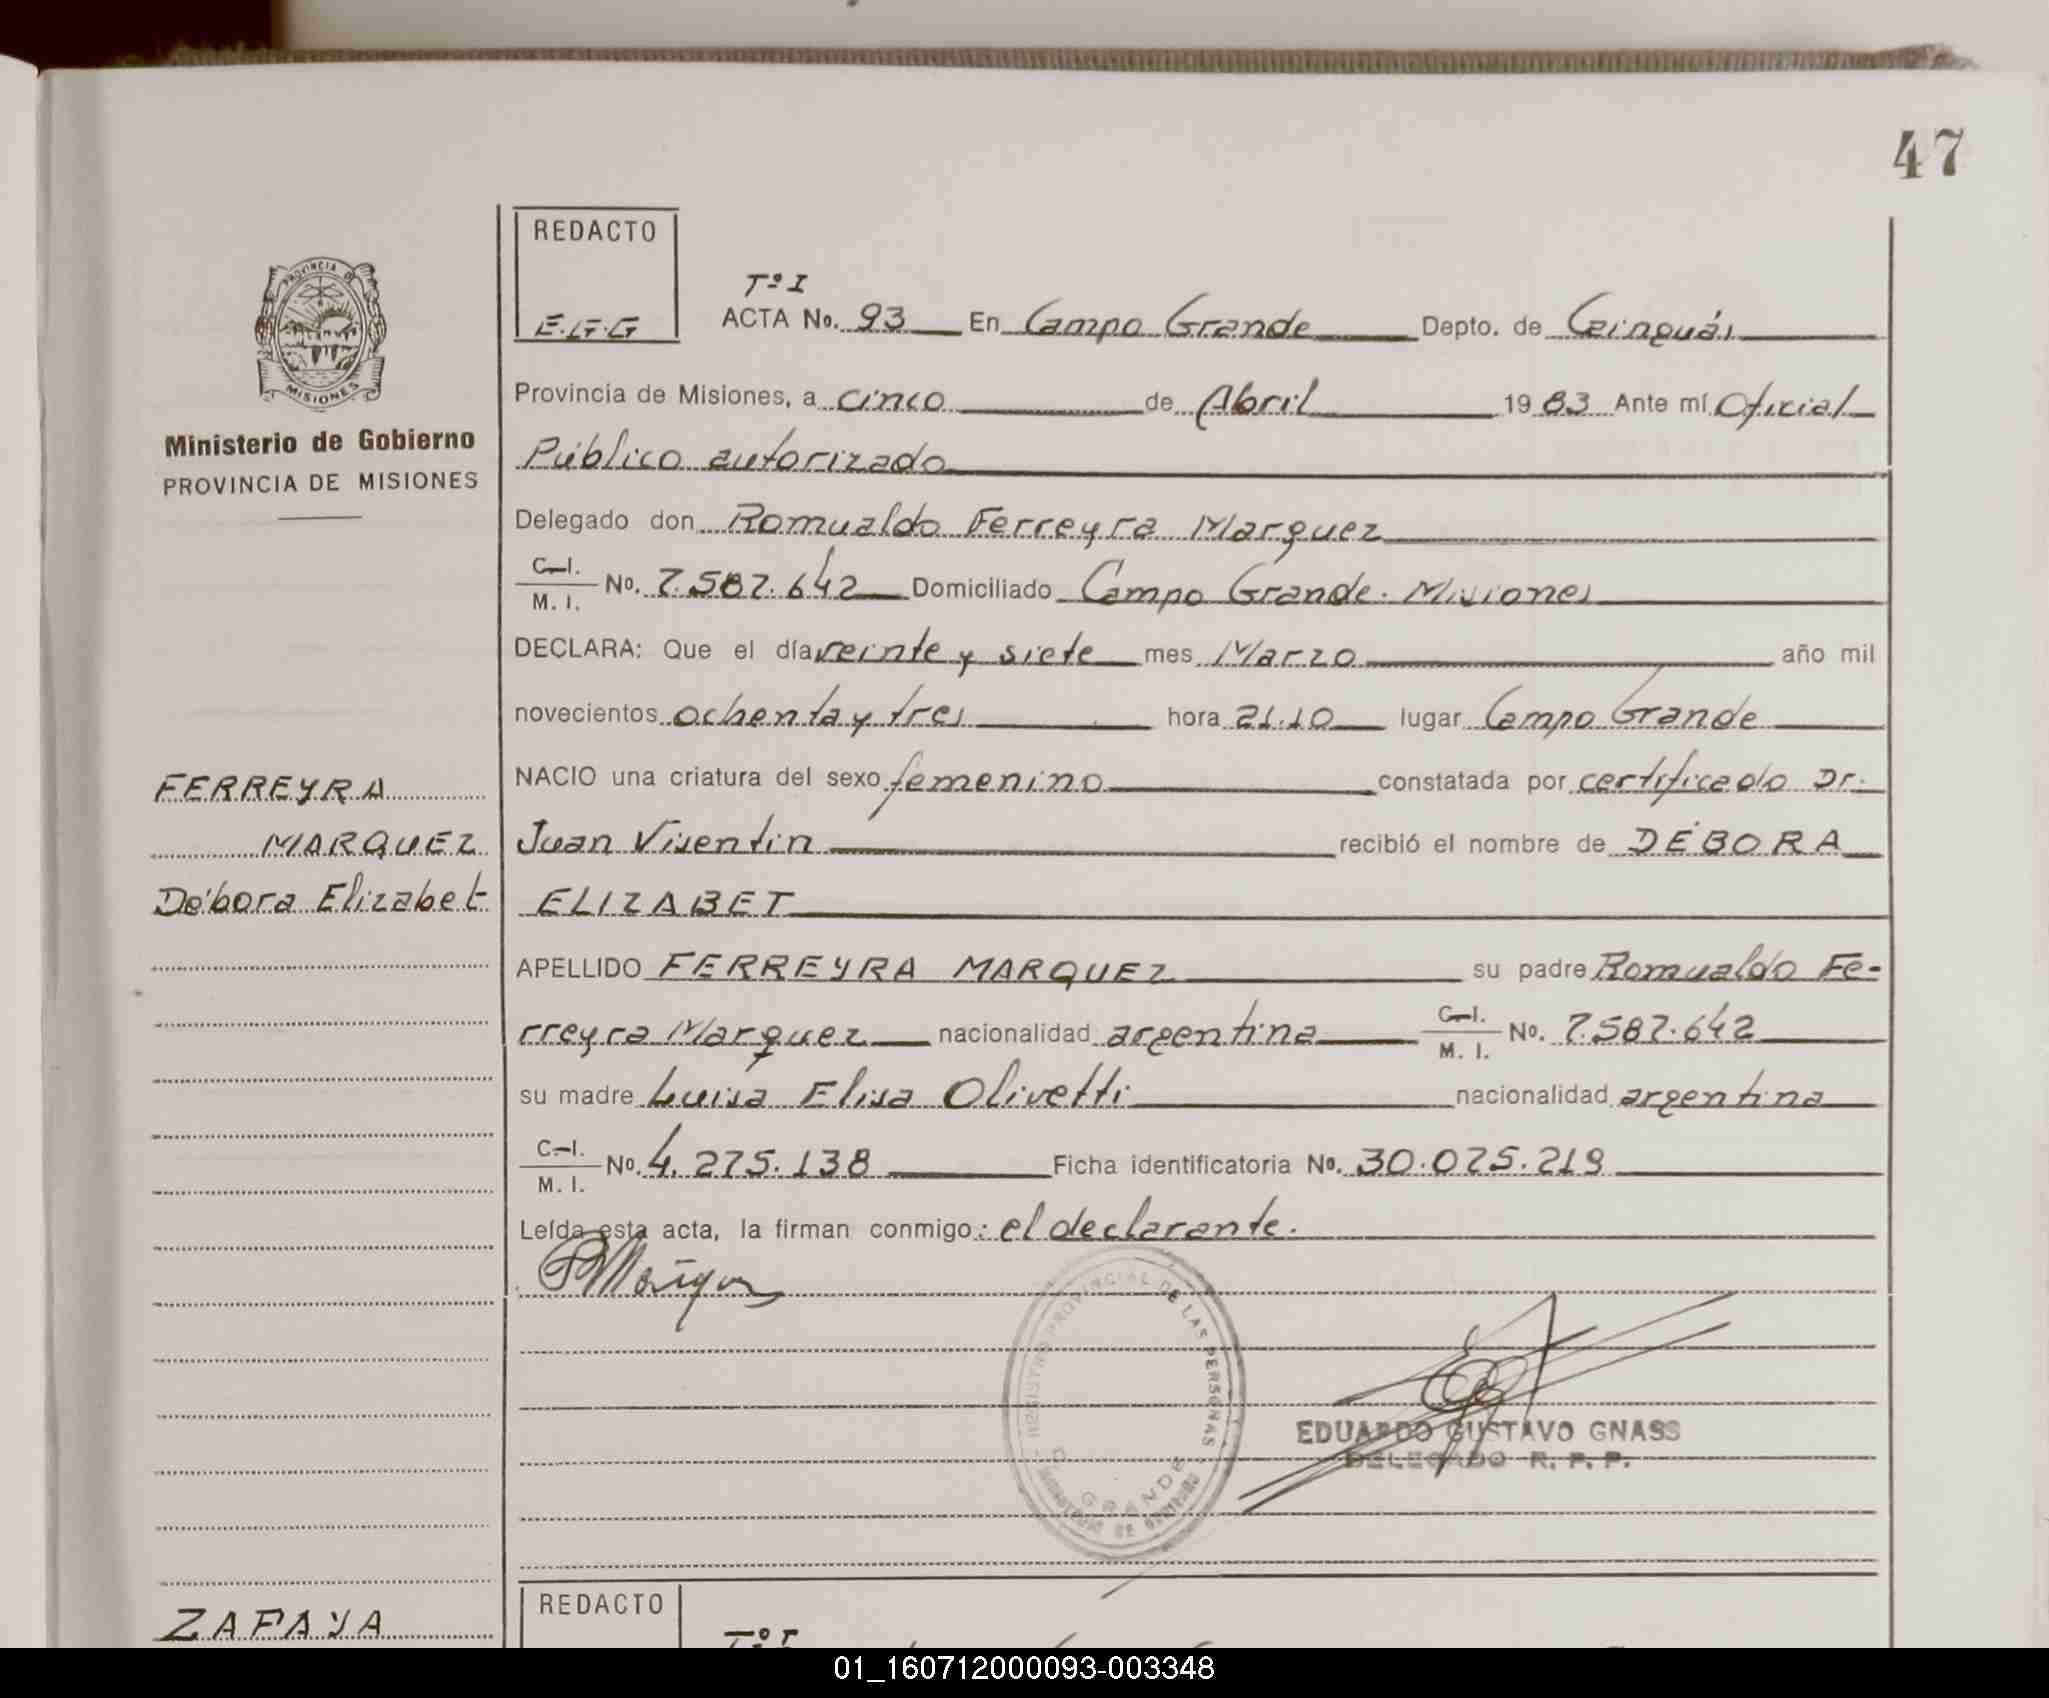 47
REDACTO
E.G.G
PROVINCIA DE
MISIONES
Ministerio de Gobierno
PROVINCIA DE MISIONES
Tº I
ACTA No. 93 En Campo Grande Depto. de Cainguás
Provincia de Misiones, a cinco de Abril 1983 Ante mí Oficial
Público autorizado
Delegado don Romualdo Ferreyra Marquez
C.I. M. I. No. 7.587.642 Domiciliado Campo Grande. Misiones
DECLARA: Que el día veinte y siete mes Marzo año mil
novecientos ochenta y tres hora 21.10 lugar Campo Grande
NACIO una criatura del sexo femenino constatada por certificado Dr.
Juan Visentin recibió el nombre de DÉBORA
ELIZABET
APELLIDO FERREYRA MARQUEZ su padre Romualdo Fe-
rreyra Marquez nacionalidad argentina C.I. M. I. No. 7.587.642
su madre Luisa Elisa Olivetti nacionalidad argentina
C.I. M. I. No. 4.275.138 Ficha identificatoria No. 30.075.219
Leída esta acta, la firman conmigo: el declarante.
FERREYRA
MARQUEZ
Débora Elizabet
REGISTRO PROVINCIAL DE LAS PERSONAS
GRANDE
MINISTERIO DE GOBIERNO
EDUARDO GUSTAVO GNASS
DELEGADO R. P. P.
ZAFAYA
REDACTO
Tº I
01_160712000093-003348